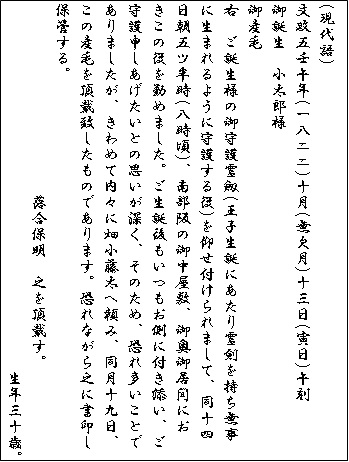 (現代語)
文政五壬午年(一八二二)十月(無欠月)十三日(寅日)午刻
御誕生　小太郎様
御産毛
右　ご誕生様の御守護霊剱(王子生誕にあたり霊剣を持ち無事
に生まれるように守護する役)を仰せ付けられまして、同十四
日朝五ツ半時(八時頃)、南部阪の御中屋敷、御奥御居間にお
きこの役を勤めました。ご生誕後もいつもお側に付き添い、ご
守護申しあげたいとの思いが深く、そのため、恐れ多いことで
ありましたが、きわめて内々に畑小藤太へ頼み、同月十九日、
この産毛を頂戴致したものであります。恐れながら之に書印し
保管する。
落合保明　之を頂戴す。
生年三十歳。